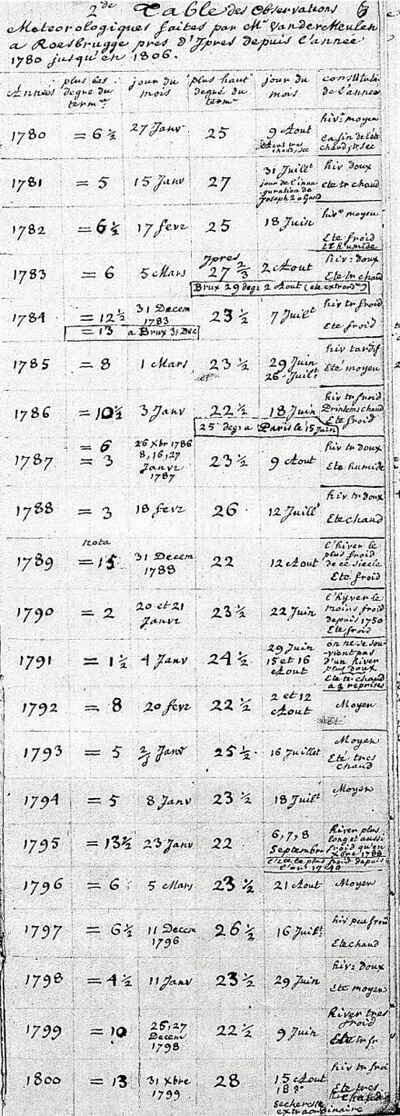 2de Table des Observations
Meteorologiques faites par Mr VanderMeulen
a Roesbrugge pres d'Ypres depuis l'année
1780 jusqu'en 1806.
Années plus bas degré du termre jour du mois plus haut degré du termre jour du mois constitution de l'année
1780 = 6½ 27 Janv 25 9 Aout hivr moyen
la fin de l'été chaud et sec
1781 = 5 15 Janv 27 31 Juillt hiv doux
jour de l'inauguration de Joseph 2 a Gand Eté tr chaud
1782 = 6½ 17 fevr 25 18 Juin hivr moyen
Eté froid et humide
1783 = 6 5 Mars Ypres 27 2/3 2 Aout hivr doux
Eté tr chaud
Brux 29 degr 2 Aout (été extrordre)
1784 = 12½ 31 Decem 1783 23½ 7 Juilt hiv tr froid
= 13 a Brux 31 Dec Eté froid
1785 = 8 1 Mars 23½ 29 Juin 26 Juilt hiv tardif
Eté moyen
1786 = 10½ 3 Janv 22½ 18 Juin hiv tr froid
Printems chaud
Eté froid
25 degr a Paris le 15 Juin
1787 = 6 = 3 26 Xbr 1786 8,16,27 Janvr 1787 23½ 9 Aout hiv tr doux
Eté humide
1788 = 3 18 fevr 26 12 Juillt hiv tr doux
Eté chaud
nota
1789 = 15 31 Decem 1788 22 12 Aout l'hiver le plus froid de ce siecle
Eté froid
1790 = 2 20 et 21 Janvr 23½ 22 Juin l'hyver le moins froid depuis 1750
Eté froid
1791 = 1½ 4 Janv 24½ 29 Juin 15 et 16 Aout on ne se souvient pas d'un hiver plus doux
Eté tr chaud a 3 reprises
1792 = 8 20 fevr 22½ 2 et 12 Aout Moyen
1793 = 5 2/3 Janv 25½ 16 Juillet Moyen
Eté tres chaud
1794 = 5 8 Janv 23½ 18 Juilt Moyen
1795 = 13½ 23 Janv 22 6,7,8 Septembre hiver plus long et aussi froid qu'en 1788
l'été le plus froid depuis l'an 1740
1796 = 6 5 Mars 23½ 21 Aout Moyen
1797 = 6½ 11 Decem 1796 26½ 16 Juilt hiv peu froid
Eté chaud
1798 = 4½ 11 Janv 23½ 29 Juin hivr doux
Eté moyen
1799 = 10 25,27 Decem 1798 22½ 9 Juin hiver tres froid
Eté tr fr
1800 = 13 31 Xbre 1799 28 15 Aout hiv tr froi
Eté tres
secheresse extraordinaire